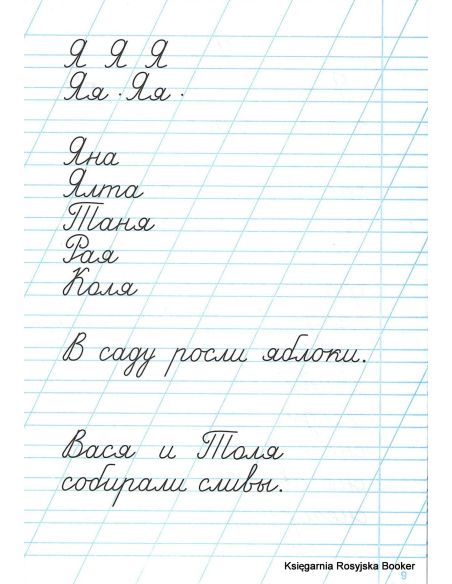 Я Я Я
Яя · Яя ·
Яна
Ялта
Таня
Рая
Коля
В саду росли яблоки.
Вася и Толя
собирали сливы.
Księgarnia Rosyjska Booker
9